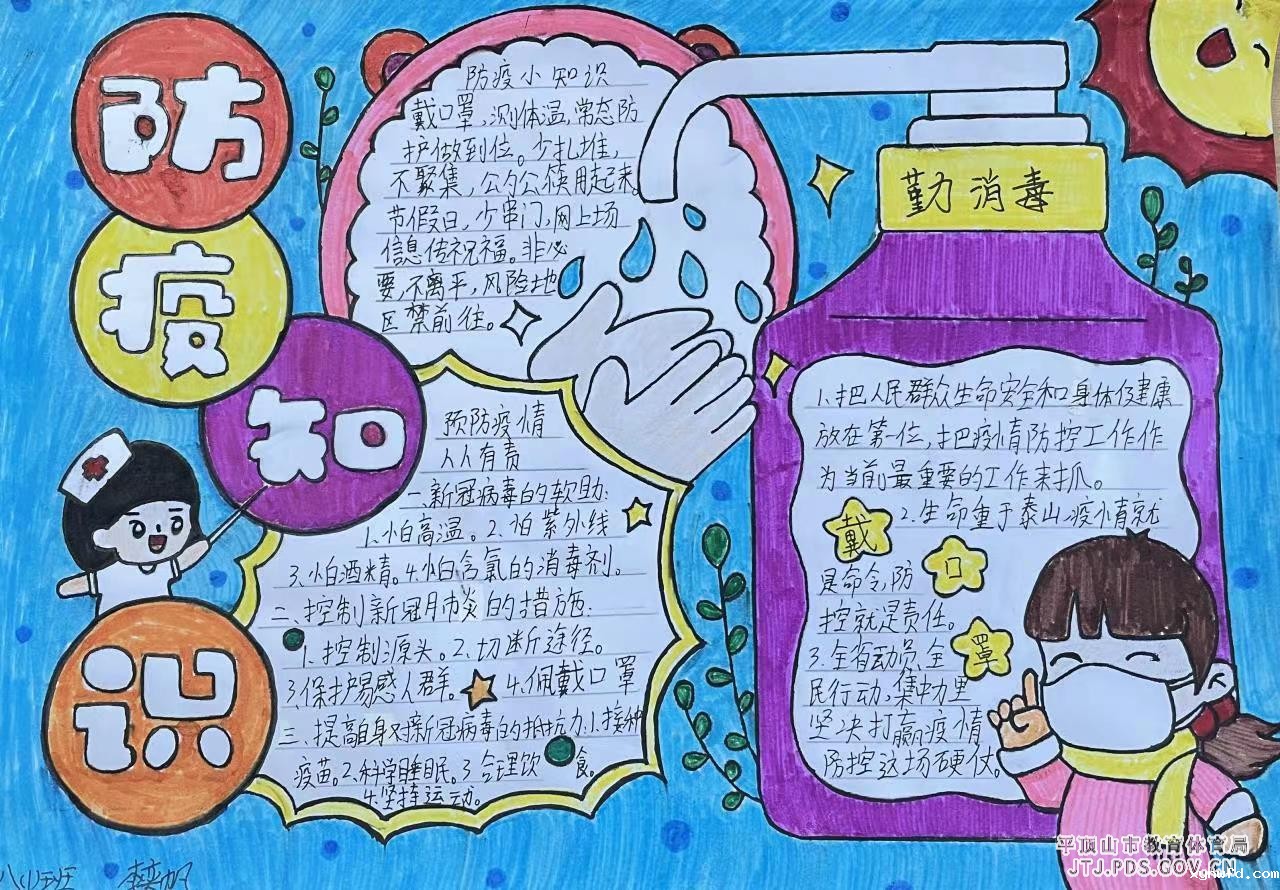 防
疫
知
识
防疫小知识
戴口罩,测体温,常态防
护做到位。少扎堆,
不聚集,公勺公筷用起来。
节假日,少串门,网上场
信息传祝福。非必
要,不离平,风险地
区禁前往。
预防疫情
人人有责
一、新冠病毒的软助:
1、怕高温。2、怕紫外线
3、怕酒精。4、怕含氯的消毒剂。
二、控制新冠肺炎的措施:
1、控制源头。2、切断途径。
3、保护易感人群。4、佩戴口罩
三、提高自身对新冠病毒的抵抗力:1、接种
疫苗。2、科学睡眠。3、合理饮食。
4、坚持运动。
勤消毒
1、把人民群众生命安全和身体健康
放在第一位,把疫情防控工作作
为当前最重要的工作来抓。
2、生命重于泰山、疫情就
是命令,防
控就是责任。
3、全省动员、全
民行动,集中力里
坚决打赢疫情
防控这场硬仗。
戴
口
罩
八(1)班
平顶山市教育体育局
JTJ.PDS.GOV.CN